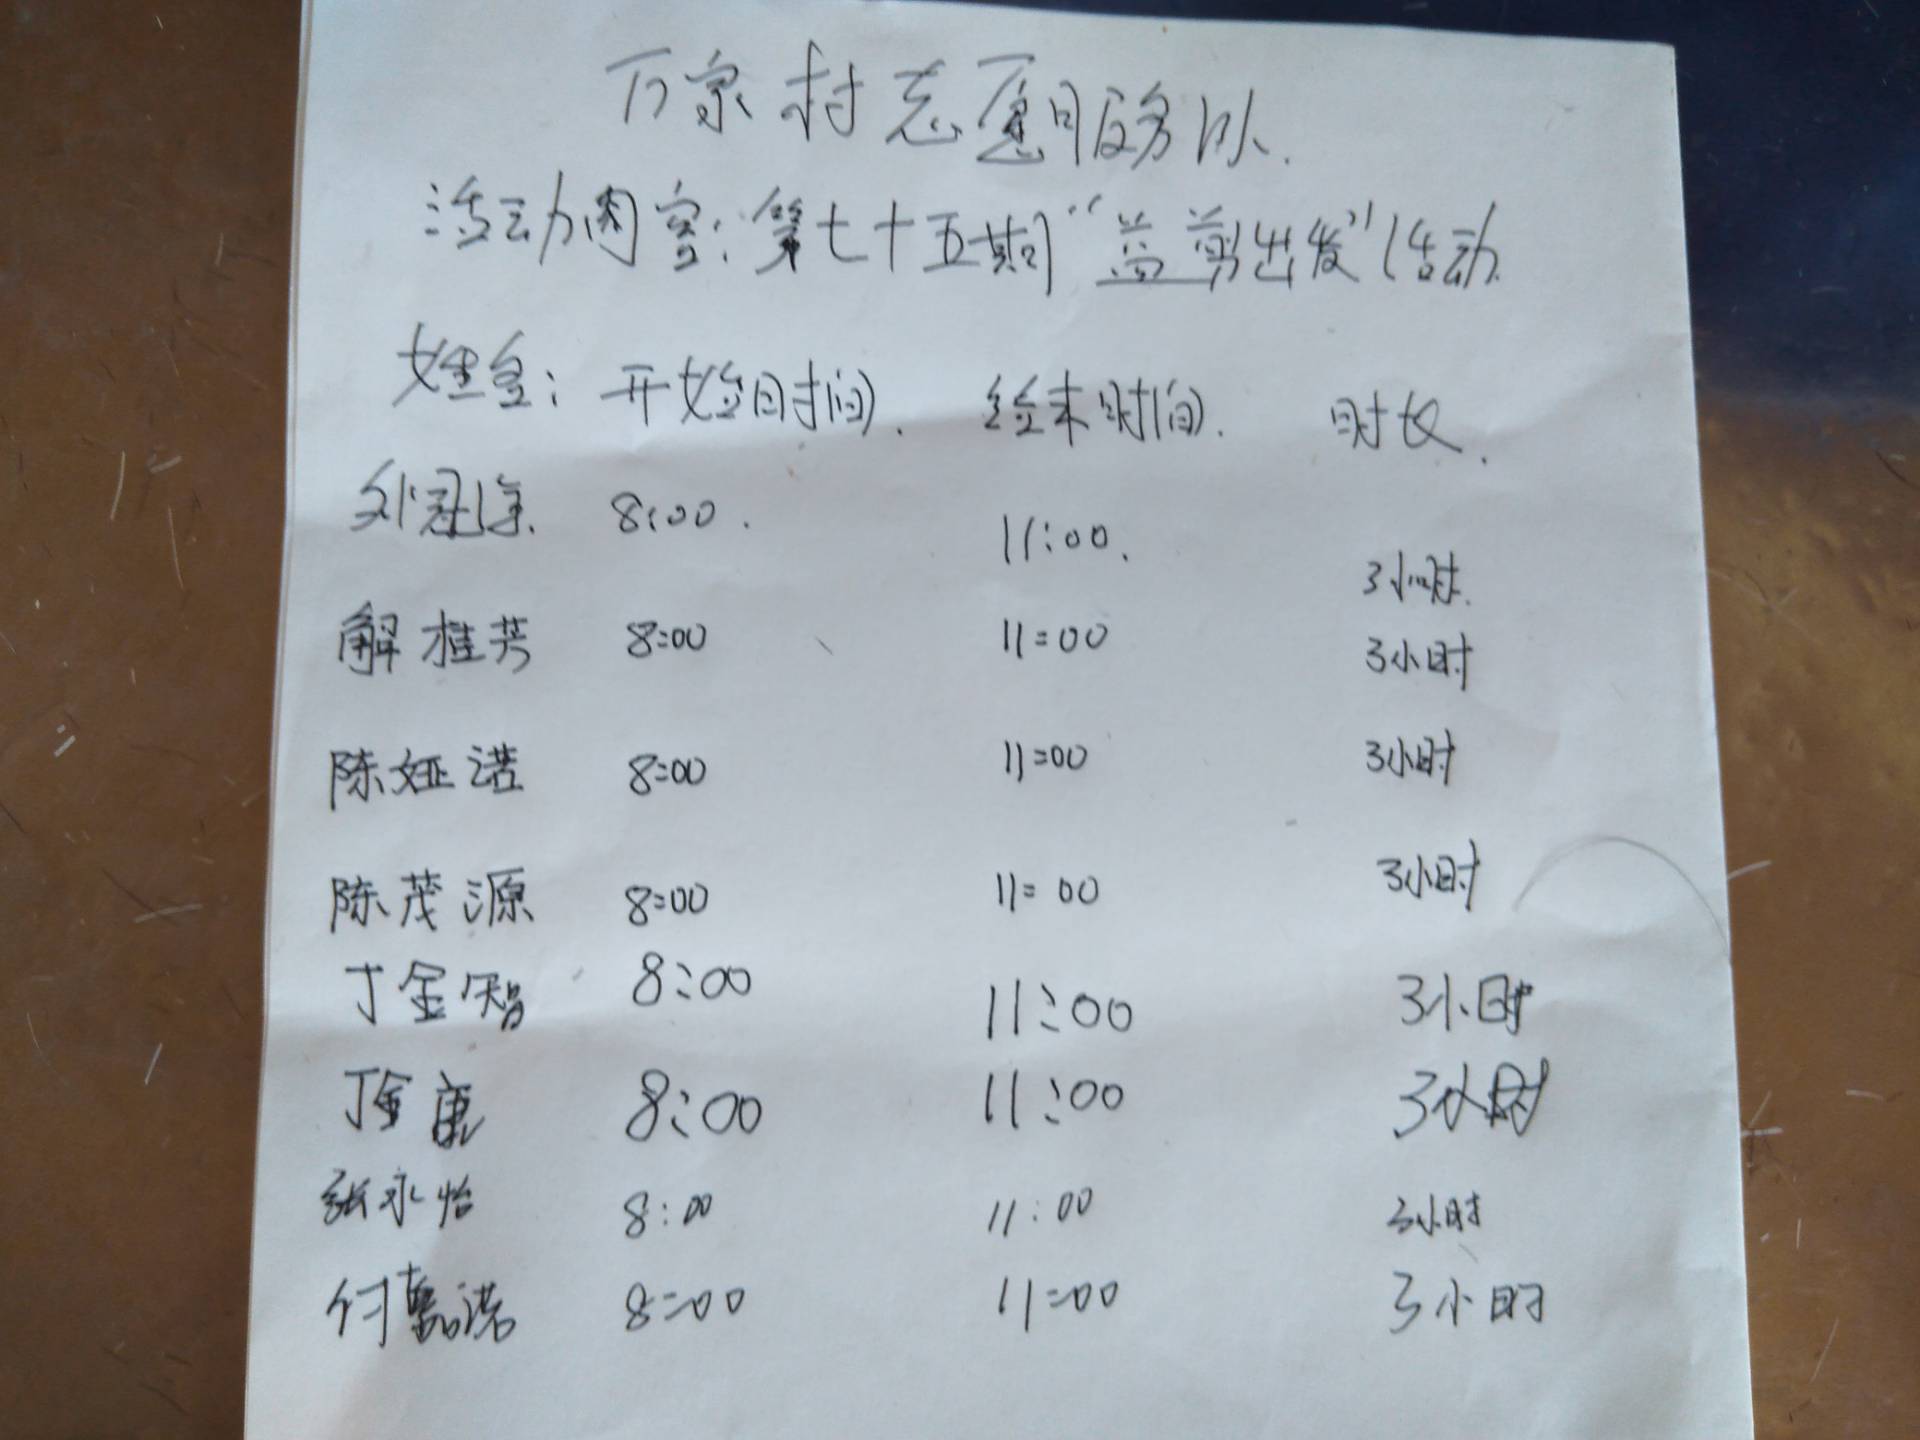 万家村志愿服务队.
活动内容:第七十五期“益剪出发”活动.
姓名: 开始时间. 结束时间. 时长.
刘冠 8:00. 11:00. 3小时.
解桂芳 8:00 11:00 3小时
陈娅诺 8:00 11:00 3小时
陈茂源 8:00 11:00 3小时
丁金智 8:00 11:00 3小时
丁金康 8:00 11:00 3小时
张永怡 8:00 11:00 3小时
付 诺 8:00 11:00 3小时